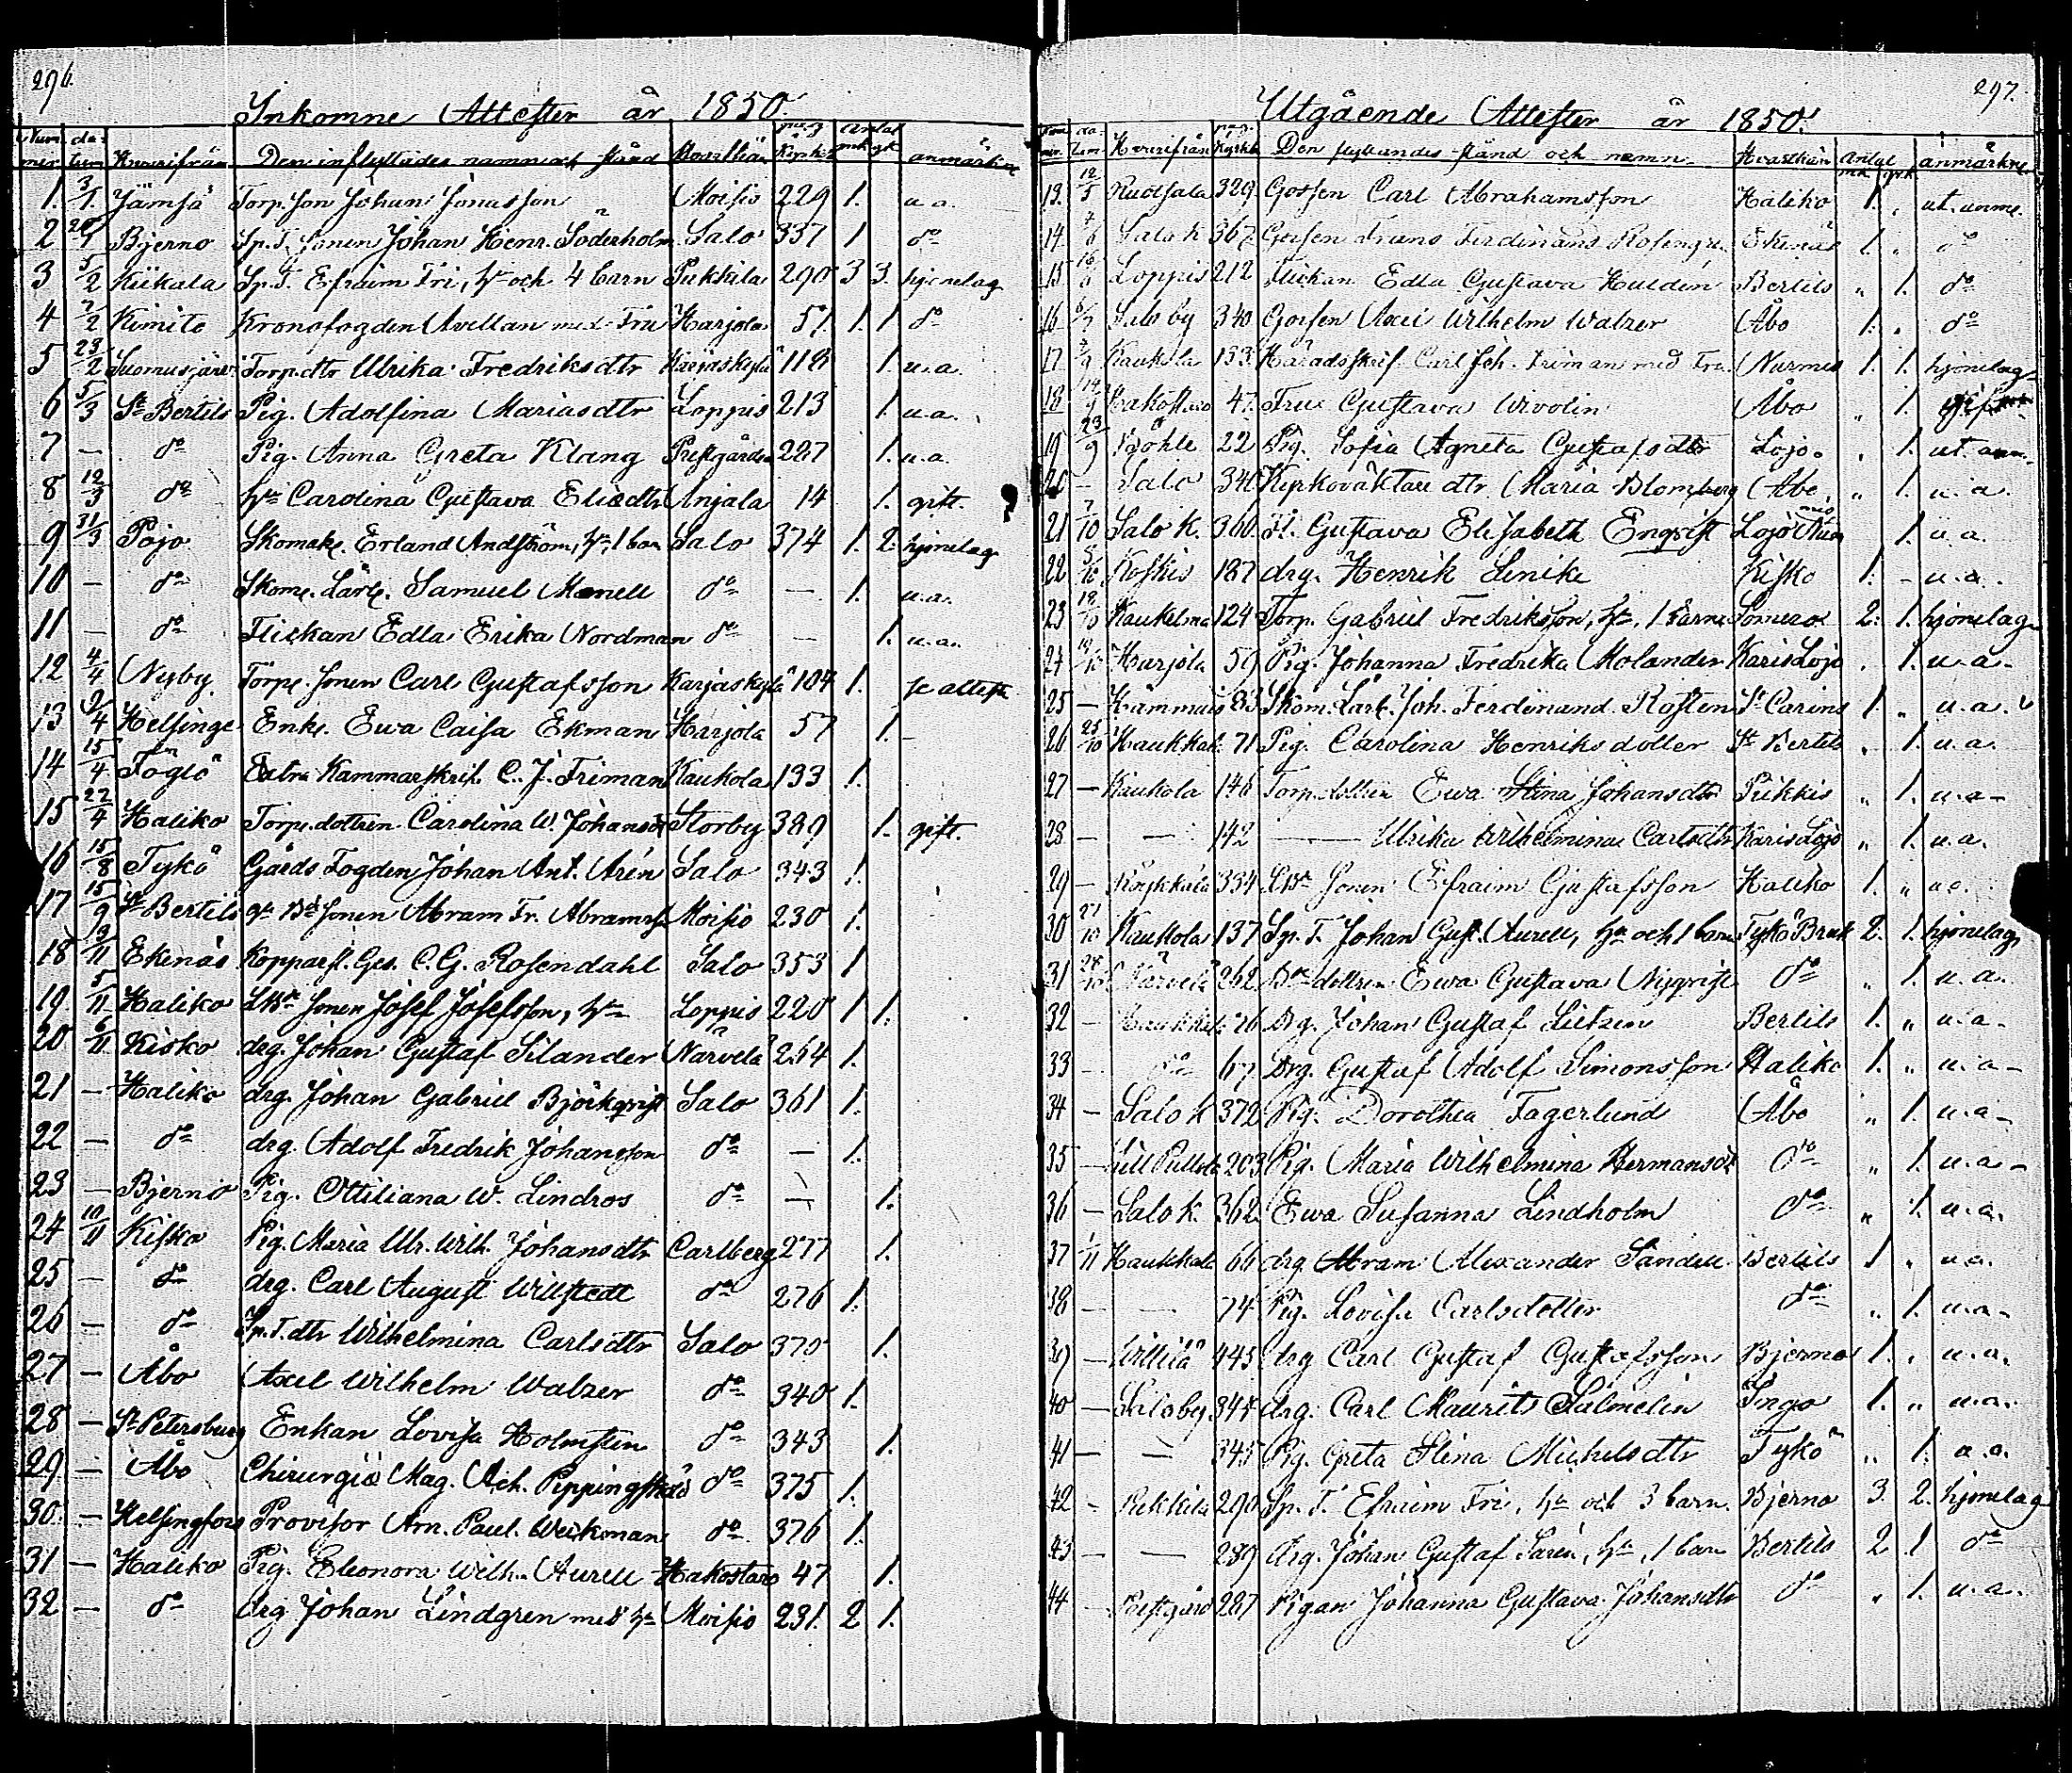 296.
Inkomne Attester år 1850.
Num mer da-tum Hvarifrån Den inflyttades namn och stånd Hvarthän pag. Kyrkb. antal mk qk anmärkn
1. 3/1 Jämsä Torp. son Johan Jonasson Moisio 229 1. u.a.
2 Bjerno Sp. T. sonen Johan Henr. Söderholm Salo 337 1 do
3 5/2 Kiikala Sp. T. Efraim Fri, h. och 4 barn Pukkila 290 3 3. hjonelag
4 7/2 Kimito Kronofogden Avellan med Fru Harjola 57. 1. 1 do
5 23/2 Suomusjärv. Torp. dtr Ulrika Fredriksdtr Karjaskylä 118 1. u.a.
6 5/3 St Bertils Pig. Adolfina Mariasdtr Loppis 213 1. u.a.
7 — do Pig. Anna Greta Klang Prestgården 287 1. u.a.
8 12/3 do h. Carolina Gustava Eliædtr Anjala 14 1. gift.
9 31/3 Pojo Skomak. Erland Andström, h., 1 barn Salo 374 1. 2. hjonelag
10 — do Skom. Lärl. Samuel Monell do — 1. u.a.
11 — do Flickan Edla Erika Nordman do — 1. u.a.
12 4/4 Nyby Torp. sonen Carl Gustafsson Karjaskylä 104 1. se attest
13 9/4 Helsinge Enk. Ewa Caisa Ekman Harjola 57 1. –
14 15/4 Föglö Extra Kammarskrif. C. J. Friman Kaukola 133 1.
15 22/4 Haliko Torp. dottren Carolina W. Johansdr Storby 389 1. gift.
16 15/8 Tykö Gårds Fogden Johan Ant. Arén Salo 343 1.
17 15/9 St Bertils sonen Abram Fr. Abramss. Moisio 230 1.
18 13/11 Ekenäs Kopparsl. Ges. C. G. Rosendahl Salo 353 1
19. 5/11 Haliko sonen Josef Josefsson, h. Loppis 220 1 1.
20 6/11 Kisko drg. Johan Gustaf Silander Närvelä 264 1.
21 — Haliko drg. Johan Gabriel Björkqvist Salo 361 1.
22 — do drg. Adolf Fredrik Johansson do — 1.
23 — Bjerno Pig. Ottiliana W. Lindros do — 1.
24 10/11 Kisko Pig. Maria Ulr. Wilh. Johansdtr Carlberg 277 1.
25 — do drg. Carl August Willstedt do 276 1.
26 — do Sp. T. dtr Wilhelmina Carlsdtr Salo 370 1.
27 — Åbo Axel Wilhelm Walzer do 340 1.
28 — St Petersburg Enkan Lovisa Holmsten do 343 1.
29 — Åbo Chirurgiæ Mag. Ach. Pippingsköld do 375 1.
30. — Helsingfors Provisor Arn. Paul. Weikman do 376 1.
31 — Haliko Pig. Eleonora Wilh. Aurell Hakostaro 47 1.
32 — do drg Johan Lindgren med h. Moisio 231. 2 1.
297.
Utgående Attester år 1850.
da-tum Hvarifrån pag. Kyrkb Den flyttandes stånd och namn Hvarthän antal mk qk anmärkn
13. 12/5 Ruotsala 329 Gossen Carl Abrahamsson Haliko 1. „ ut. anm.
14. Salo k. 367 Gossen Frans Ferdinand Rosengr. Ekenäs 1. „ do
15 Loppis 212 Flickan Edla Gustava Huldén Bertils „ 1. do
16 Salo by 340 Gossen Axel Wilhelm Walzer Åbo 1. „ do
17. Kaukola 133 Häradsskrif. Carl Joh. Friman med Fru Nurmes 1. 1. hjonelag
18 Hakostaro 47. Fru Gustava Wivolin Åbo „ 1.
19 23/9 22 Pig. Sofia Agneta Gustafsdtr Lojo „ 1. ut. anm.
20 – Salo 340 Kyrkoväktare dtr Maria Blomberg Åbo „ 1. u.a.
21 7/10 Salo k. 360 Fl. Gustava Elisabeth Engqvist Lojo 1. u.a.
22 5/10 Koskis 187 drg. Henrik Linike Kisko 1. – u.a.
23 18/10 Haukelma 124 Torp. Gabriel Fredriksson, h., 1 barn Somero 2. 1. hjonelag
24 19/10 Harjola 59 Pig. Johanna Fredrika Molander Karis Lojo . 1. u.a.
25 — 83 Skom. Lärl. Joh. Ferdinand Rosten St Carins 1. „ u.a.
26 25/10 Haukkal. 71 Pig. Carolina Henriksdotter St Bertils „ 1. u.a.
27 — Kaukola 146 Torp. dottren Ewa Stina Johansdtr Pikkis „ 1. u.a.
28 — — 142 — Ulrika Wilhelmina Carlsdtr Karis Lojo „ 1. u.a.
29 — 334 sonen Efraim Gustafsson Haliko 1. „ u.a.
30 27/10 Kaukola 137 Sp. T. Johan Gust. Aurell, h. och 1 barn Tykö Bruk 2. 1. hjonelag
31 Närvelä 262 dottren Ewa Gustava Nyqvist do „ 1. u.a.
32 – Haukkal. 76 Drg. Johan Gustaf Lietzen Bertils 1. „ u.a.
33 – do 67 Drg. Gustaf Adolf Simonsson Haliko 1. „ u.a.
34 — Salo k 372 Pig. Dorothea Fagerlund Åbo „ 1. u.a.
35 – 203 Pig. Maria Wilhelmina Hermansdr do „ 1. u.a.
36 – Salo k. 362 Ewa Susanna Lindholm do „ 1. u.a.
37 1/11 Haukkala 66 drg Abram Alexander Sandell Bertils 1 „ u.a.
38 — — 74 Pig. Lovisa Carlsdotter do „ 1. u.a.
39 — 445 drg Carl Gustaf Gustafsson Bjerno 1. „ u.a.
40 — Salo by 345 drg. Carl Maurits Salmelin Ingo 1. „ u.a.
41 — — 345 Pig. Greta Stina Michelsdtr Tykö „ 1. u.a.
42 – Pukkila 290 Sp. T. Efraim Fri, h. och 3 barn. Bjerno 3. 2. hjonelag
43 — — 289 drg. Johan Gustaf Sarén, h., 1 barn Bertils 2 1 do
44 – Prestgård 287 Pigan Johanna Gustava Johansdtr do „ 1. u.a.